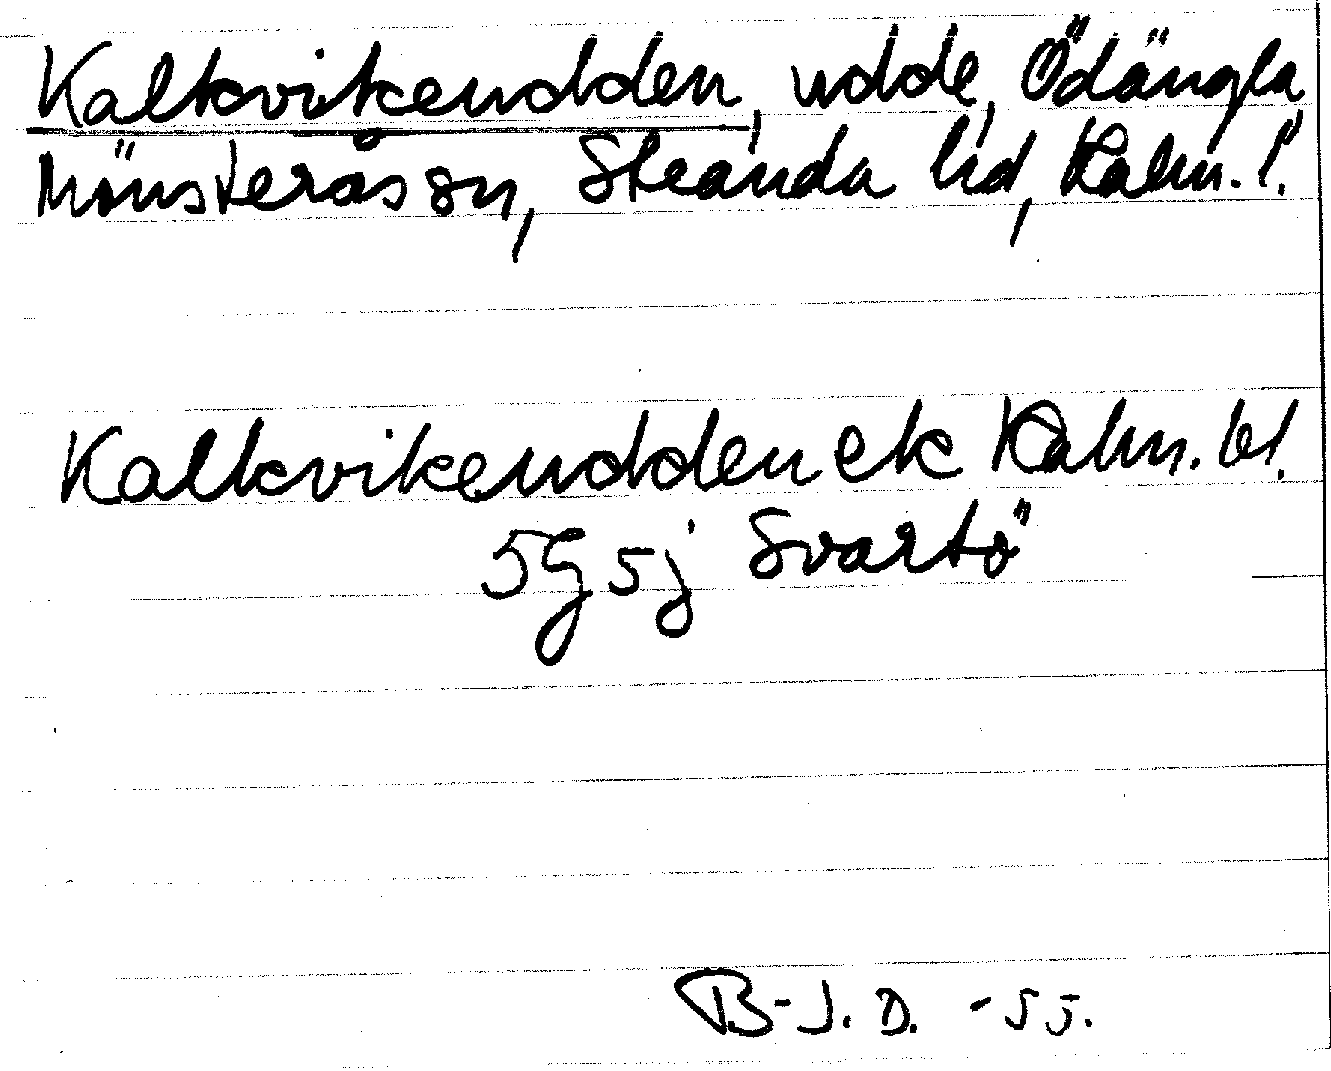 Kalkvikeudden, udde, Ödängla
Mönsterås sn, Stranda hd, Kalm. l.
Kalkvikeudden ek Kalm. bl.
5G 5j Svartö
B-J. D. -55.